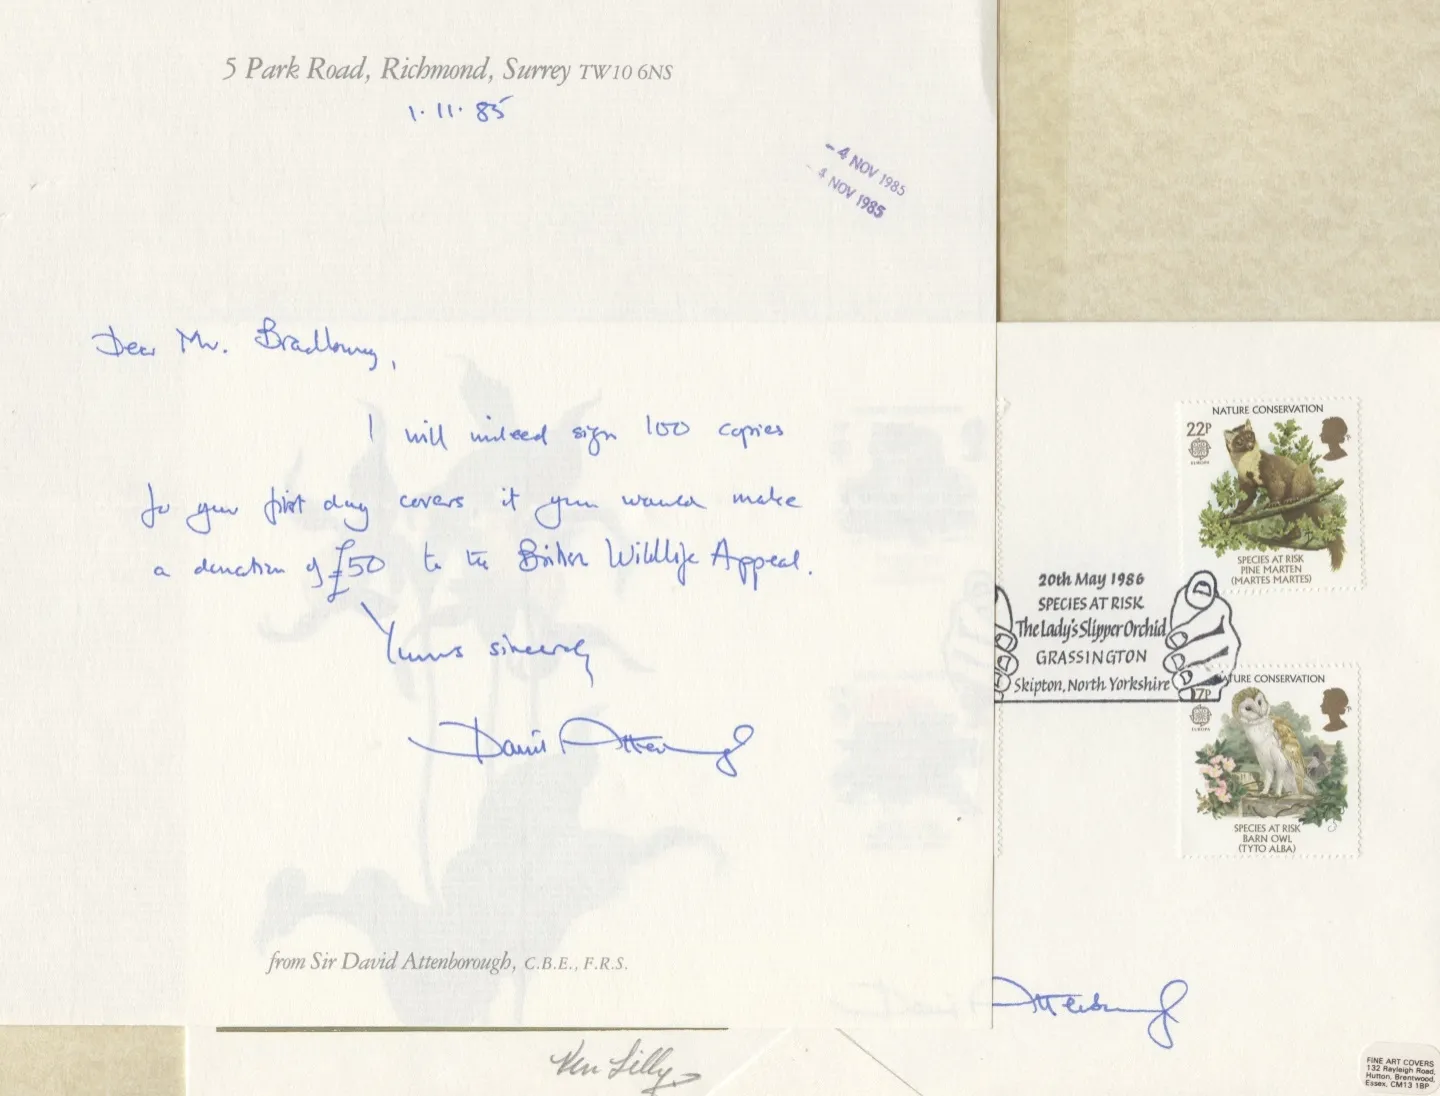 5 Park Road, Richmond, Surrey TW10 6NS
1.11.85
- 4 NOV 1985
- 4 NOV 1985
Dear Mr. Bradbury,
I will indeed sign 100 copies
fo your first day covers if you would make
a donation of £50 to the British Wildlife Appeal.
Yours sincerely
David Attenborough
from Sir David Attenborough, C.B.E., F.R.S.
NATURE CONSERVATION
22P
EUROPA
SPECIES AT RISK
PINE MARTEN
(MARTES MARTES)
20th May 1986
SPECIES AT RISK
The Lady's Slipper Orchid
GRASSINGTON
Skipton, North Yorkshire
NATURE CONSERVATION
17P
EUROPA
SPECIES AT RISK
BARN OWL
(TYTO ALBA)
Attenborough
Ken Lilly
FINE ART COVERS
132 Rayleigh Road,
Hutton, Brentwood,
Essex, CM13 1BP